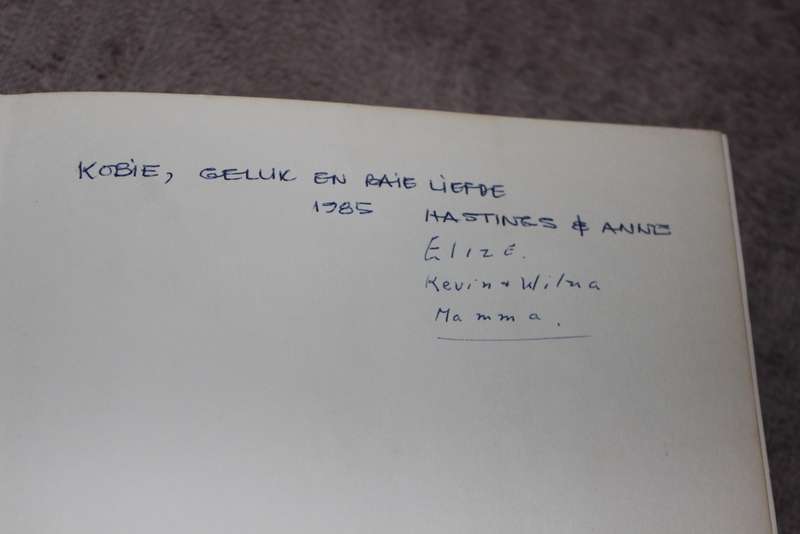 KOBIE, GELUK EN BAIE LIEFDE
1985 HASTINGS & ANNE
Elizé.
Kevin + Wilna
Mamma.